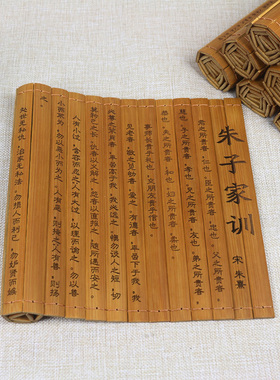 朱子家训
宋 朱熹
君之所贵者，仁也。臣之所贵者，忠也。父之所贵者，
慈也。子之所贵者，孝也。兄之所贵者，友也。弟之所贵者，
恭也。夫之所贵者，和也。妇之所贵者，柔也。
事师长贵乎礼也，交朋友贵乎信也。
见老者，敬之；见幼者，爱之。有德者，年虽下于我，我
必尊之；不肖者，年虽高于我，我必远之。慎勿谈人之短，切
莫矜己之长。仇者以义解之，怨者以直报之，随所遇而安之。
人有小过，含容而忍之；人有大过，以理而谕之。勿以善
小而不为，勿以恶小而为之。人有恶，则掩之；人有善，则扬
之。
处世无私仇，治家无私法。勿损人而利己，勿妒贤而嫉